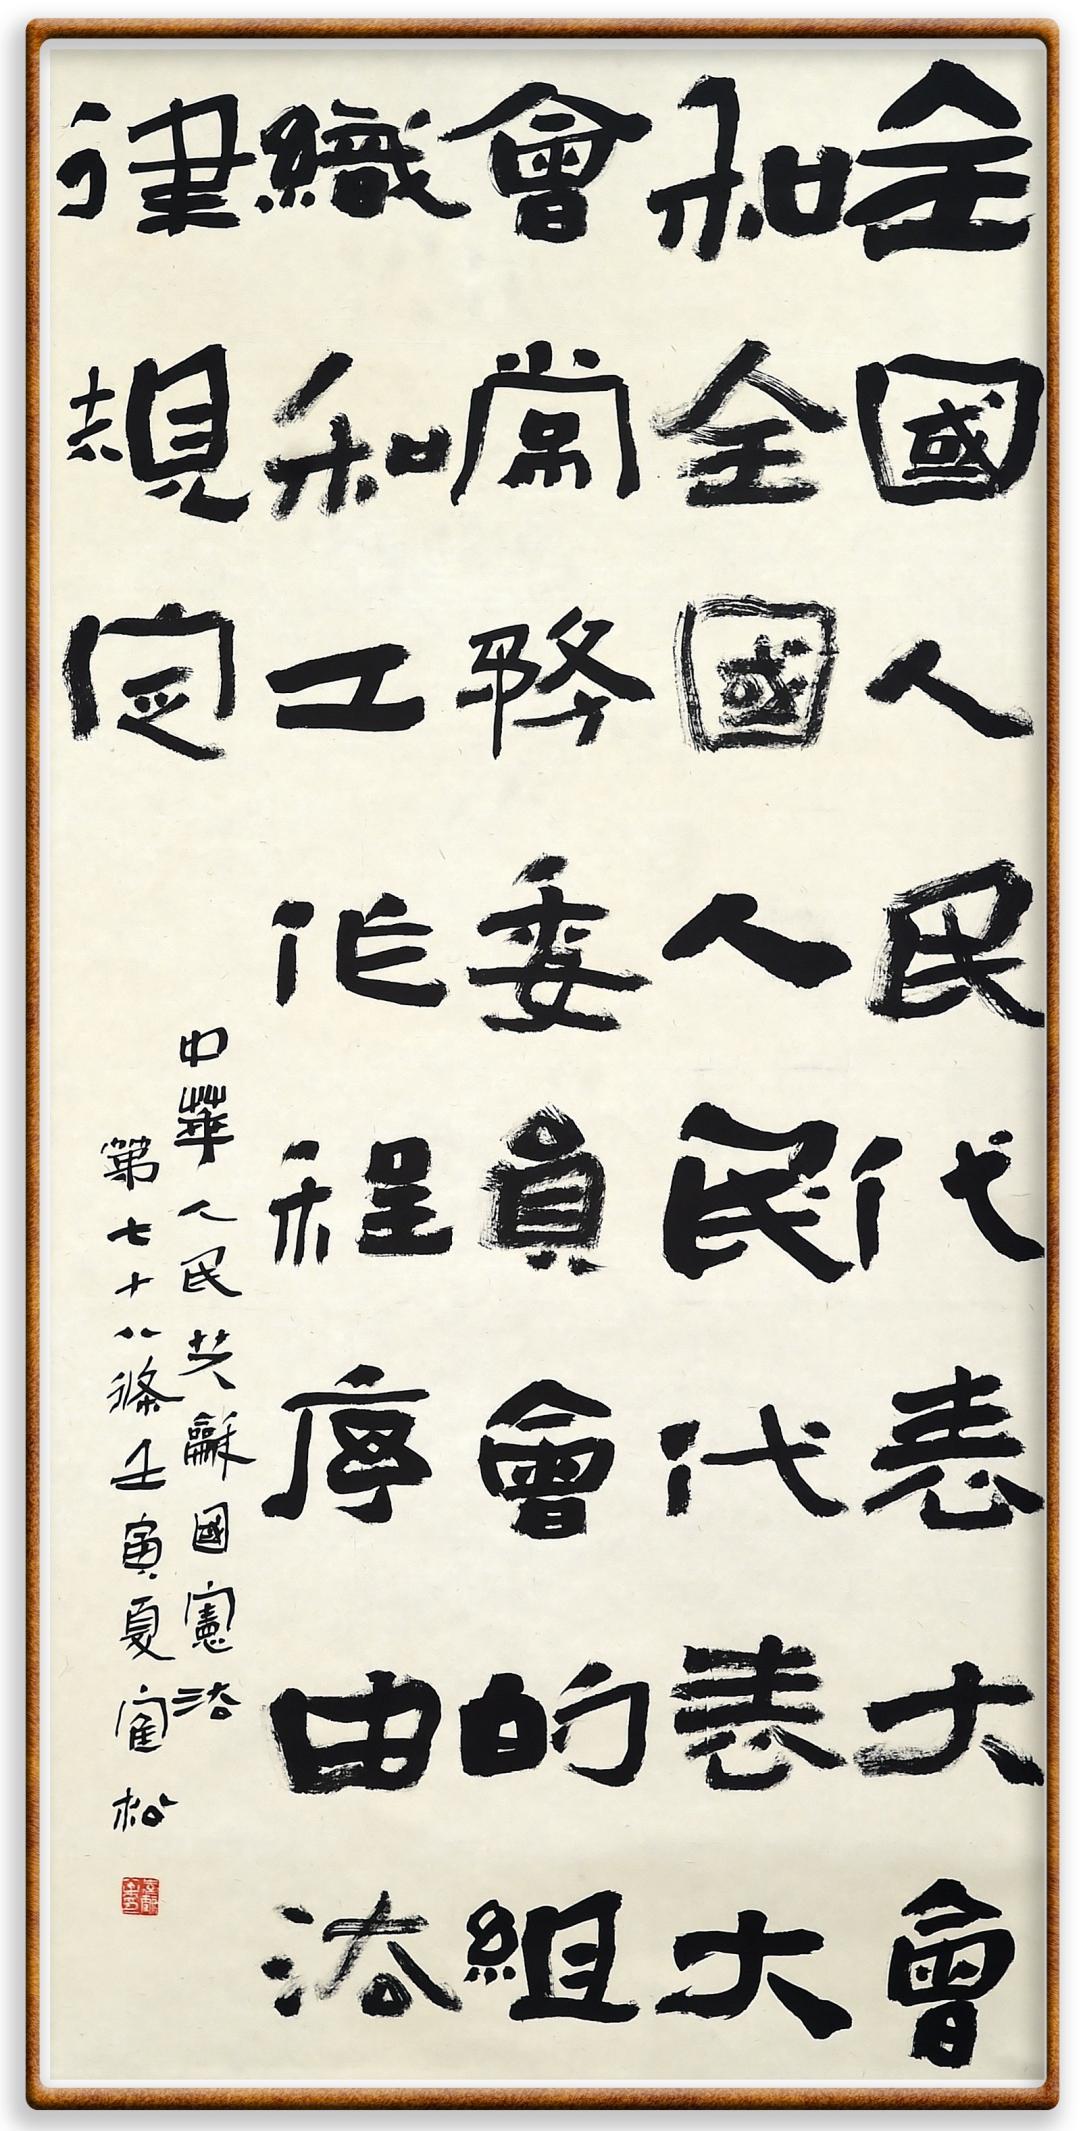 全國人民代表大會
和全國人民代表大
會常務委員會的組
織和工作程序由法
律規定
中華人民共龢國憲法
第七十八條壬寅夏寉松